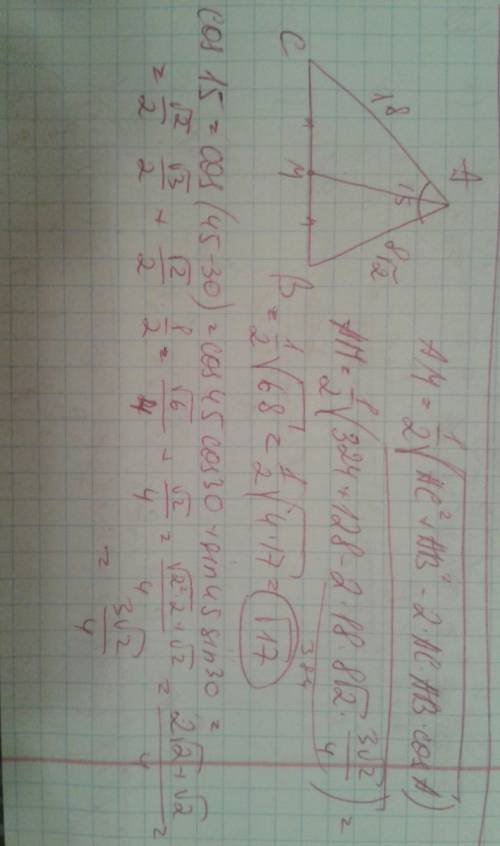 A
18
15
8√2
C
M
B
AM = 1/2 √(AC² + AB² - 2·AC·AB·cos A)
AM = 1/2 √(324 + 128 - 2·18·8√2·3√2/4) =
384
= 1/2 √68 = 1/2 √4·17 = √17
cos 15 = cos(45-30) = cos 45 cos 30 + sin 45 sin 30 =
= √2/2 √3/2 + √2/2 1/2 = √6/4 + √2/4 = √2²·2+√2/4 = 2√2+√2/4 =
= 3√2/4